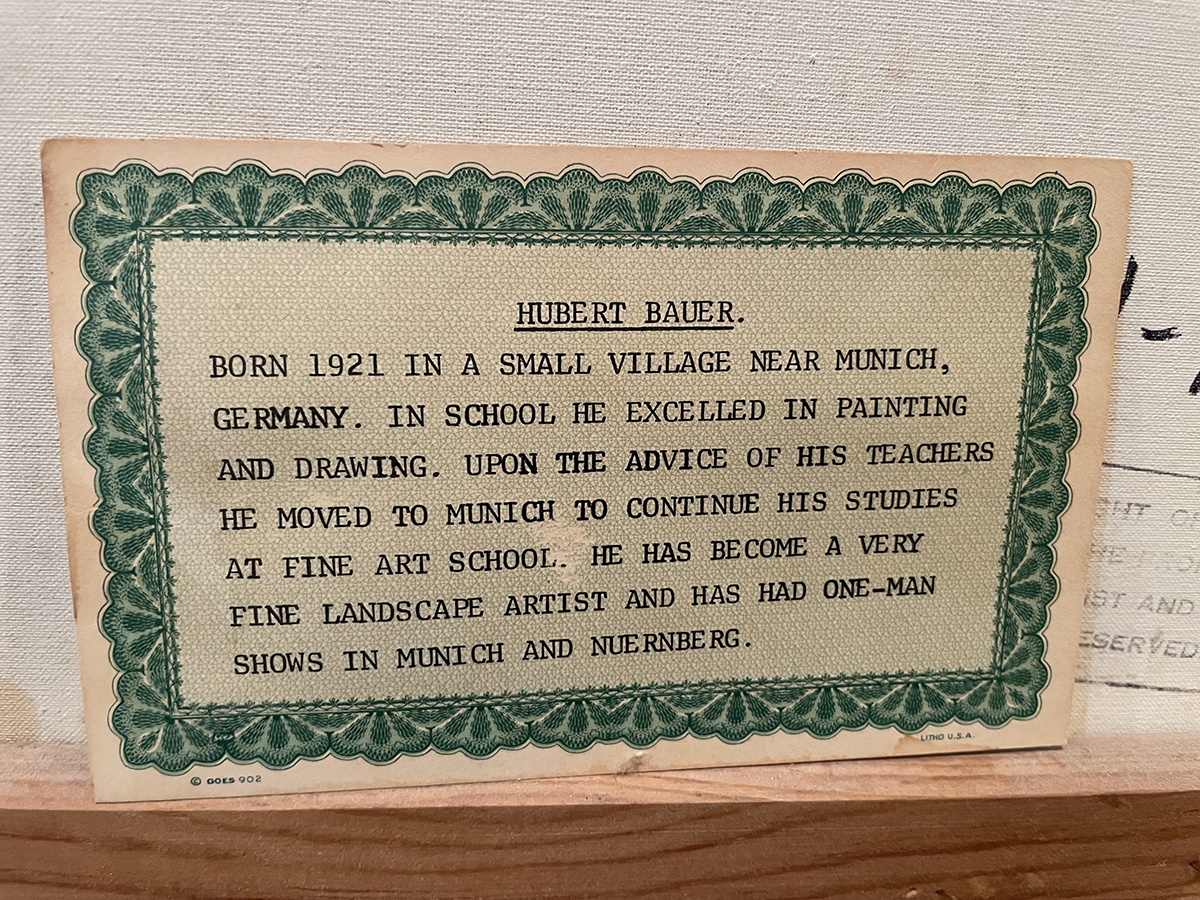 HUBERT BAUER.
BORN 1921 IN A SMALL VILLAGE NEAR MUNICH,
GERMANY. IN SCHOOL HE EXCELLED IN PAINTING
AND DRAWING. UPON THE ADVICE OF HIS TEACHERS
HE MOVED TO MUNICH TO CONTINUE HIS STUDIES
AT FINE ART SCHOOL. HE HAS BECOME A VERY
FINE LANDSCAPE ARTIST AND HAS HAD ONE-MAN
SHOWS IN MUNICH AND NUERNBERG.
© GOES 902
LITHO U.S.A.
AND